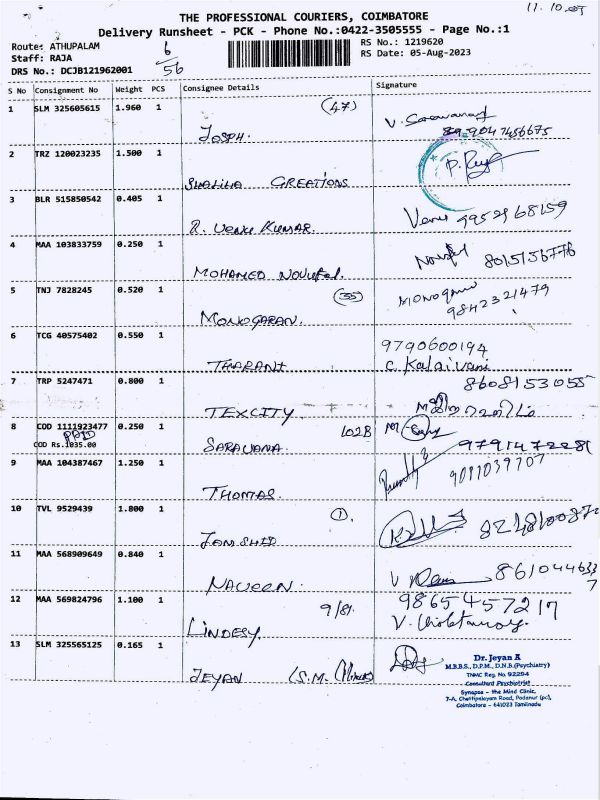 11.10
THE PROFESSIONAL COURIERS, COIMBATORE
Delivery Runsheet - PCK - Phone No.:0422-3505555 - Page No.:1
Route: ATHUPALAM 6/56 RS No.: 1219620
Staff: RAJA RS Date: 05-Aug-2023
DRS No.: DCJB121962001
S No Consignment No Weight PCS Consignee Details Signature
1 SLM 325605615 1.960 1 (47) V. Saravanan
JOSPH. 9047456675
2 TRZ 120023235 1.500 1
CREATIONS
3 BLR 515850542 0.405 1
R. VENU KUMAR. Venu 9952968159
4 MAA 103833759 0.250 1
MOHAMED 8015156776
5 TNJ 7828245 0.520 1 (55)
MONOGARAN. 9842321479
6 TCG 40575402 0.550 1 9790600194
THARANI C. Kalaivani
7 TRP 5247471 0.800 1 8608153055
TEXCITY
8 COD 1111923477 0.250 1 102B
COD Rs.1035.00
SARAVANA. 9791472281
9 MAA 104387467 1.250 1
THOMAS.
10 TVL 9529439 1.800 1 (1)
JAMSHID
11 MAA 568909649 0.840 1
NAVEEN. 8610446337
12 MAA 569824796 1.100 1 9/81. 9865457217
LINDESY.
13 SLM 325565125 0.165 1
JEYAN (S.M.
Dr. Jeyan A
M.B.B.S., D.P.M., D.N.B.(Psychiatry)
TNMC Reg. No 92294
Consultant Psychiatrist
Synapse - the Mind Clinic,
7-A, Chettipalayam Road, Podanur (po),
Coimbatore - 641023 Tamilnadu